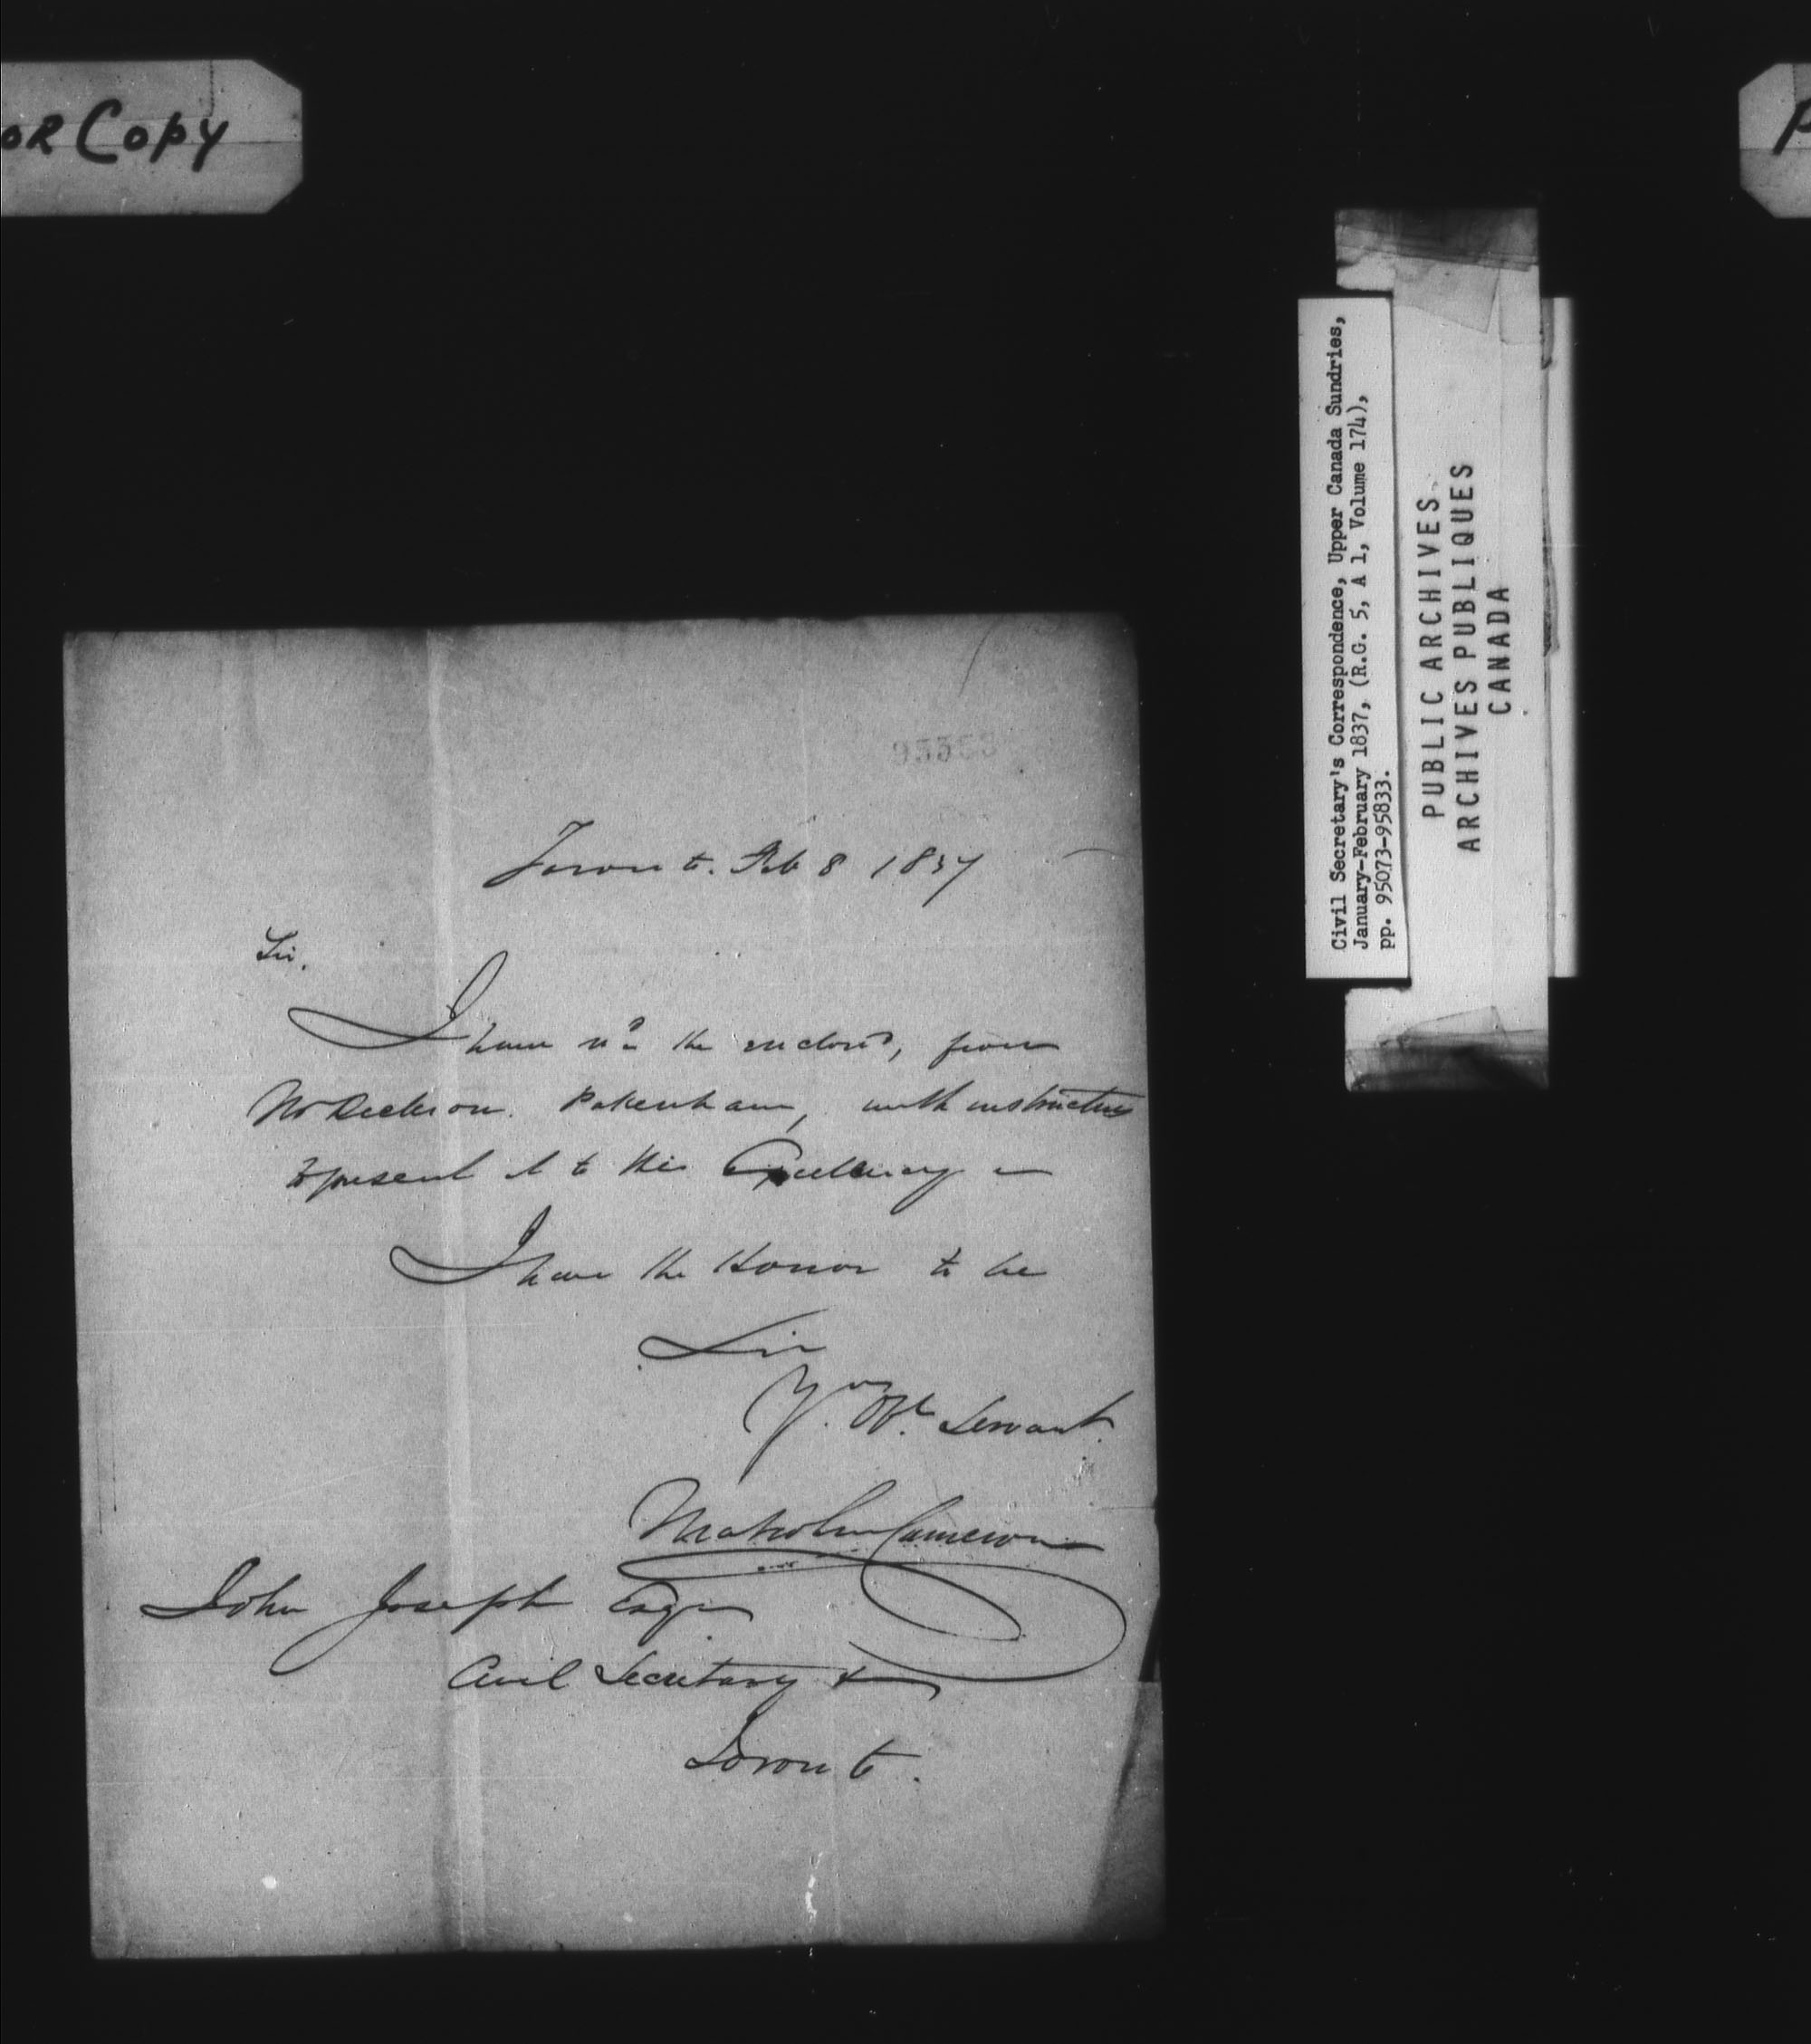 OR Copy
P
Toronto. Feb 8 1837
Sir,
I have rec'd the enclosed, from
Mr Dickson. Pakenham, with instructions
to present it to His Excellency –
I have the Honor to be
Sir
Yr. Obt Servant.
Malcolm Cameron
John Joseph Esqr
Civil Secretary &
Toronto.
Civil Secretary's Correspondence, Upper Canada Sundries,
January-February 1837, (R.G. 5, A 1, Volume 174),
pp. 95073-95833.
PUBLIC ARCHIVES
ARCHIVES PUBLIQUES
CANADA